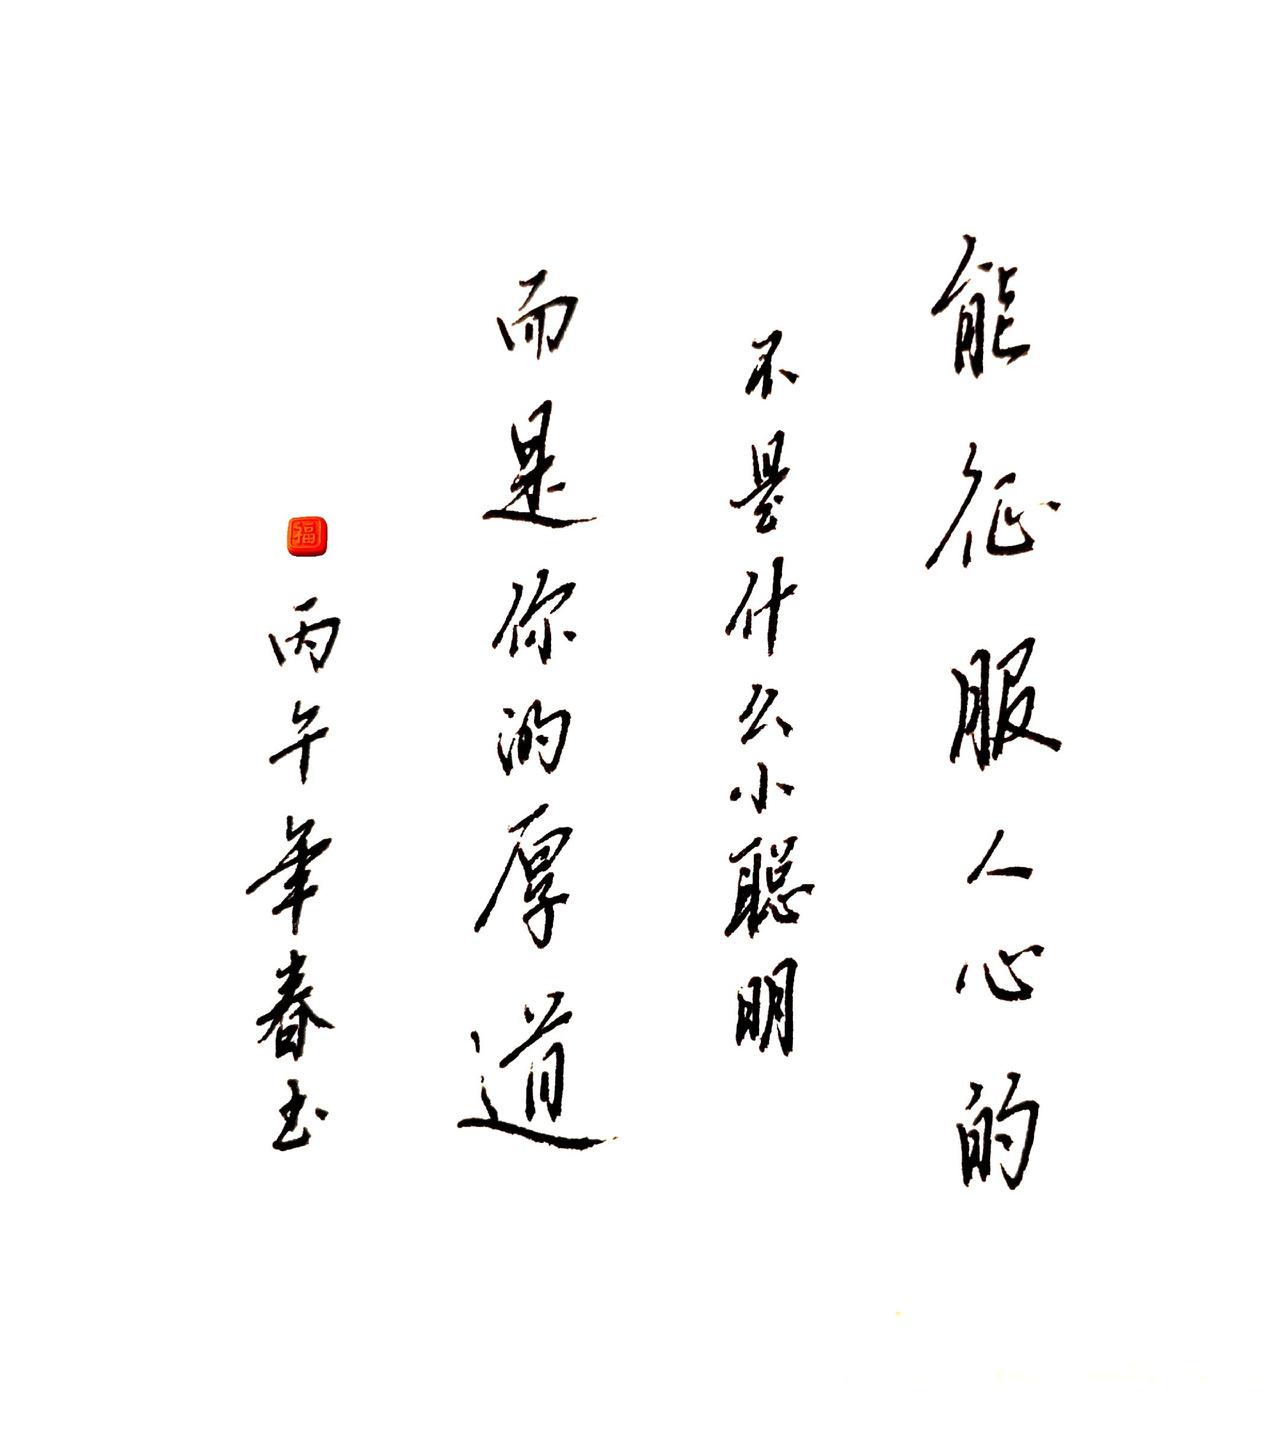 能征服人心的
不是什么小聪明
而是你的厚道
福
丙午年春玉